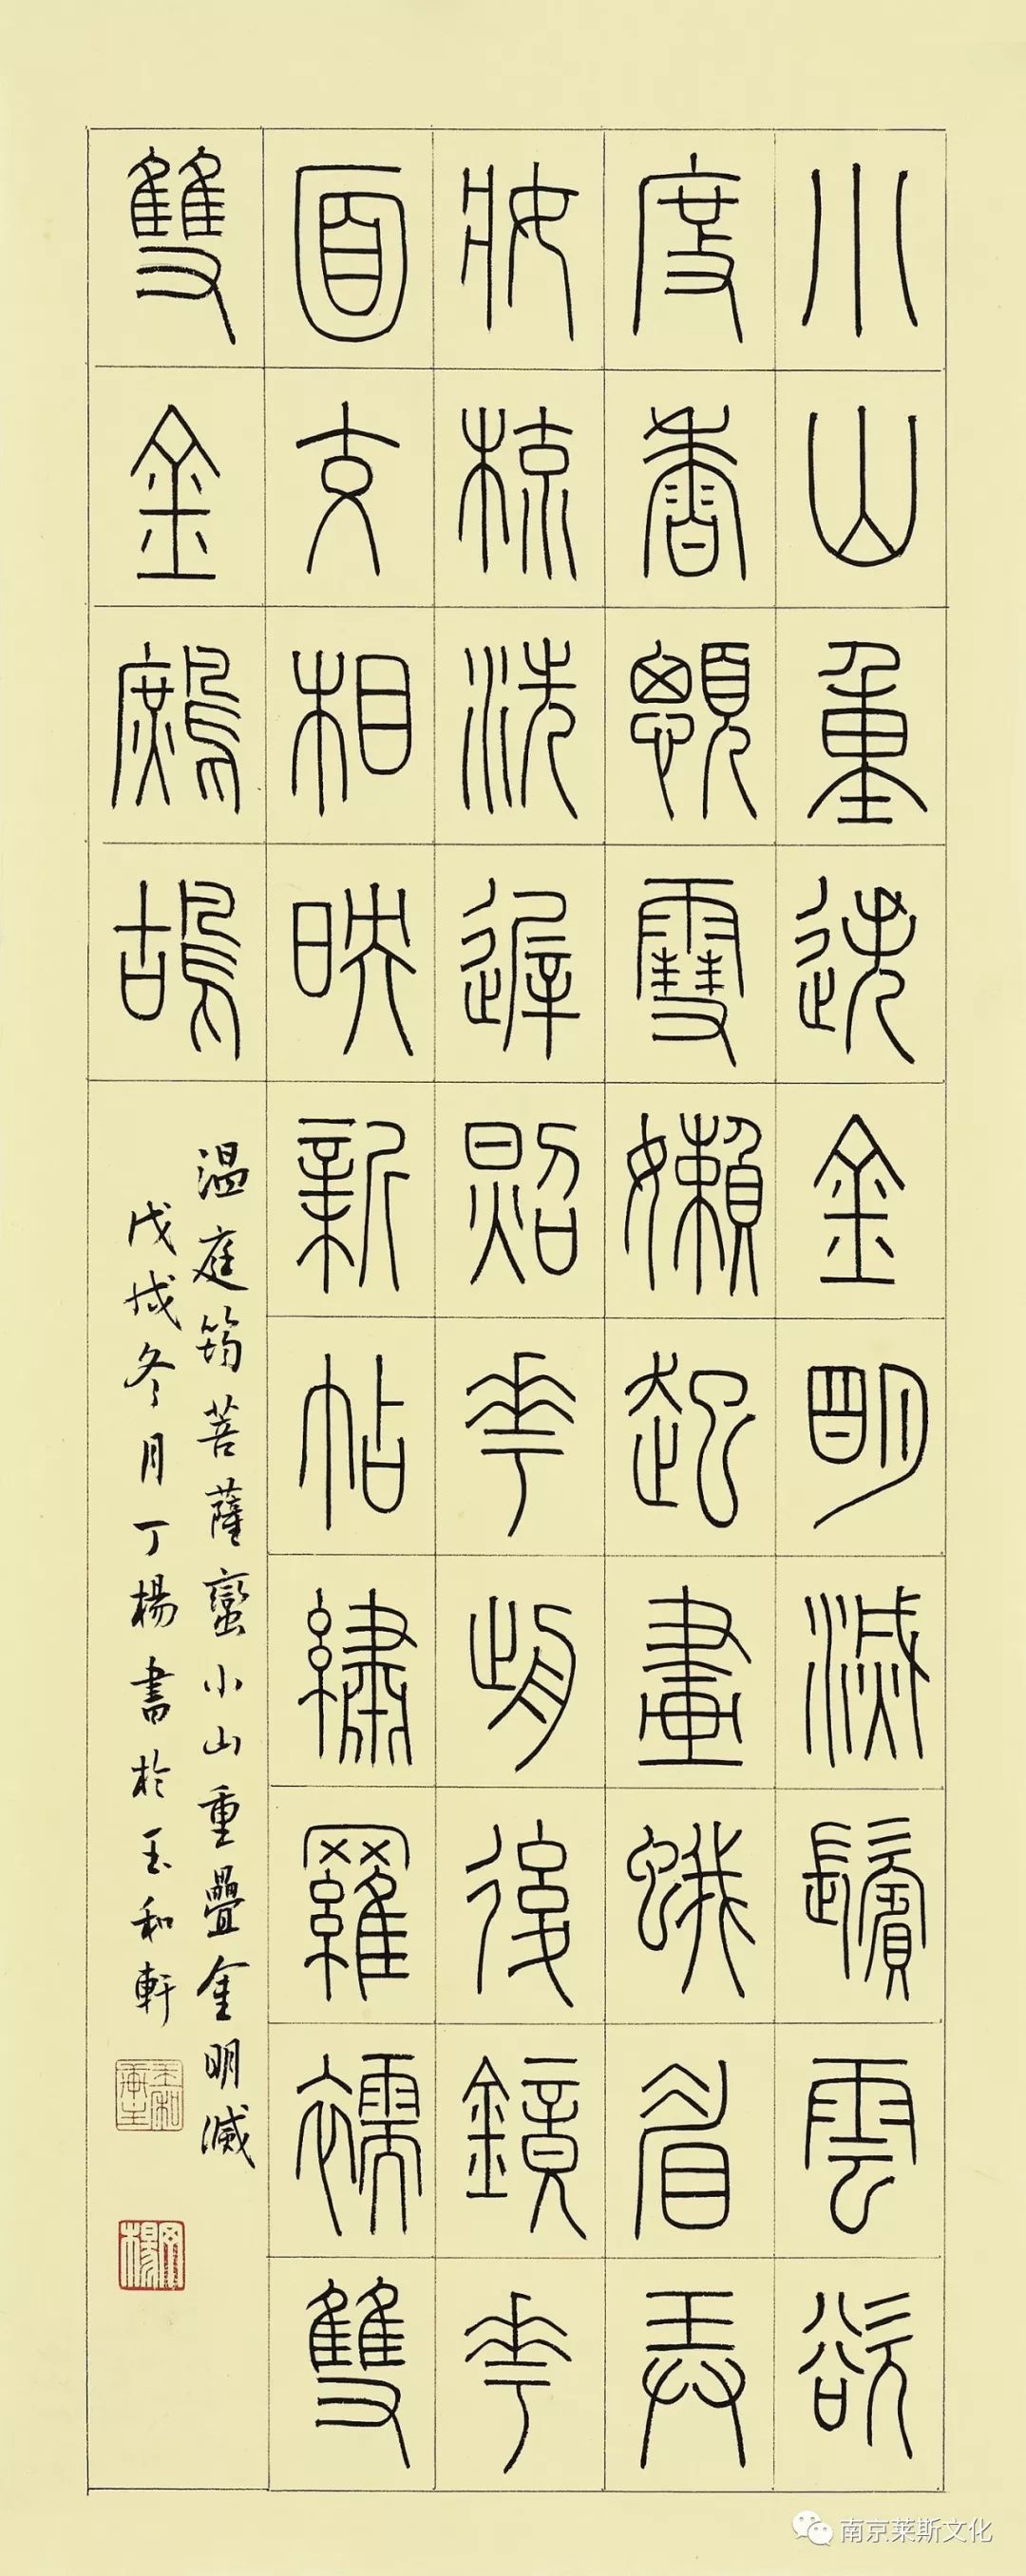 小山重迭金明滅鬢雲欲
度香顋雪嬾起畫蛾眉弄
妝梳洗遲照花前後鏡花
面交相映新帖繡羅襦雙
雙金鷓鴣
温庭筠菩薩蠻小山重疊金明滅
戊戌冬月丁楊書於玉和軒
南京莱斯文化